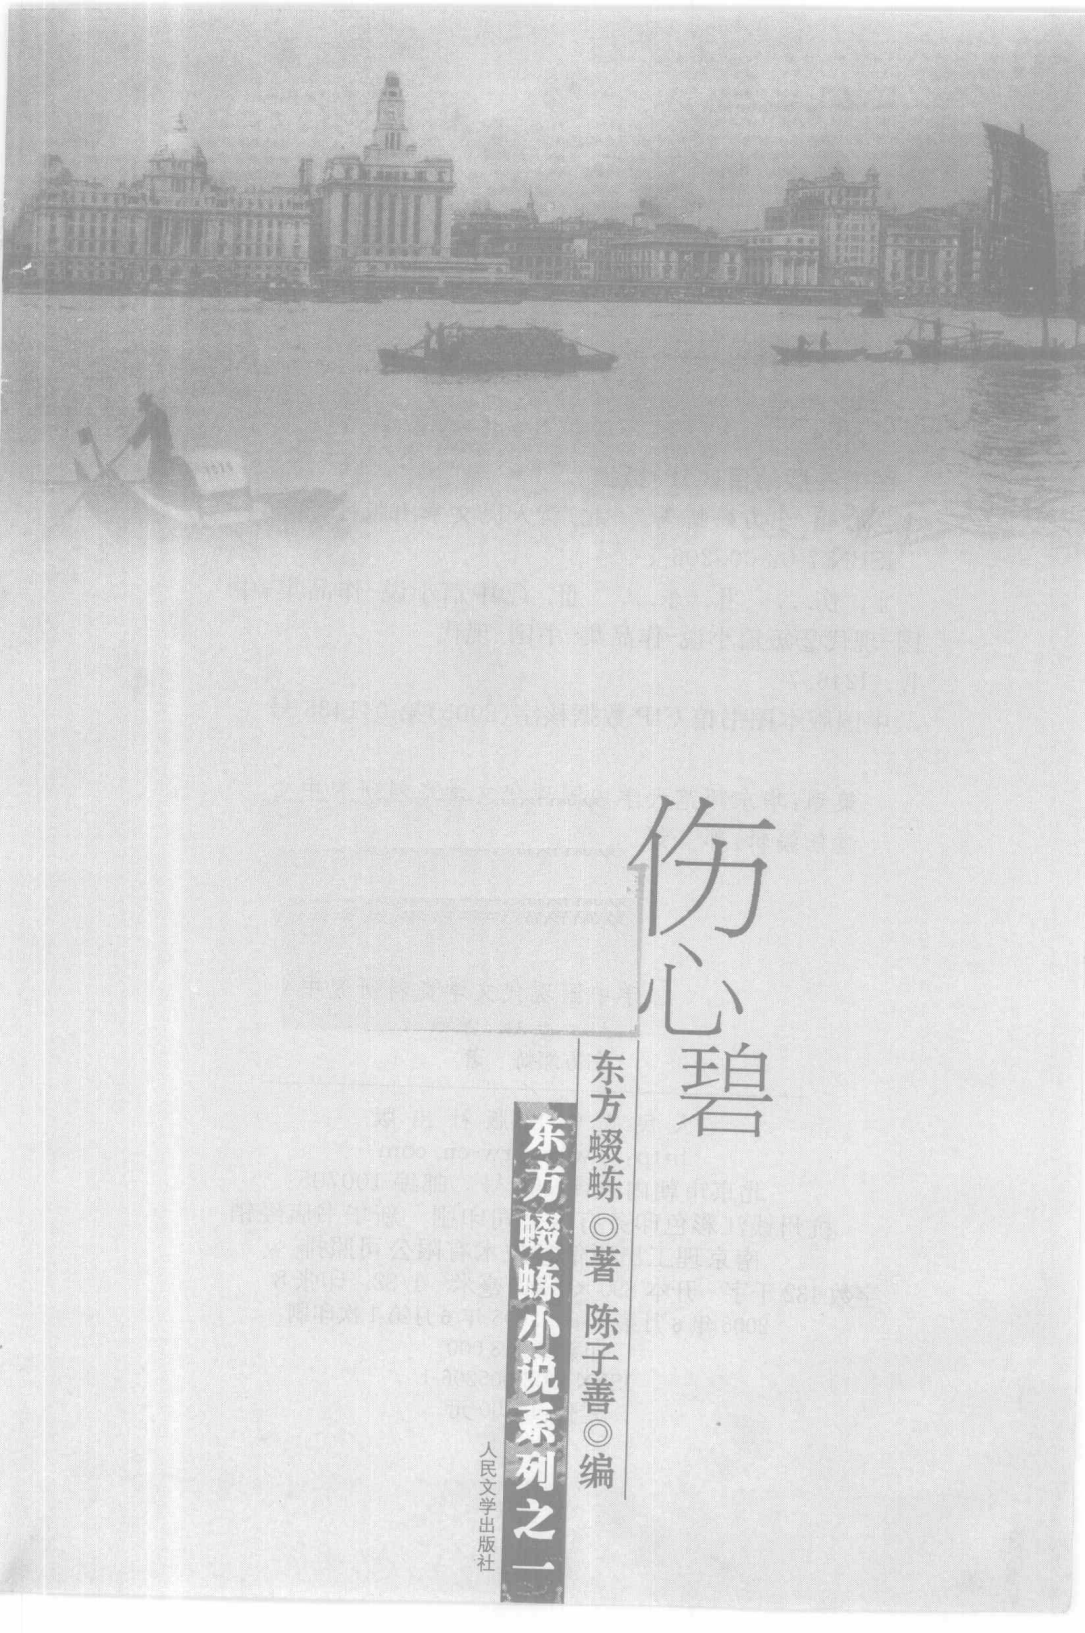 伤心碧
东方蝃蝀◎著 陈子善◎编
东方蝃蝀小说系列之一
人民文学出版社